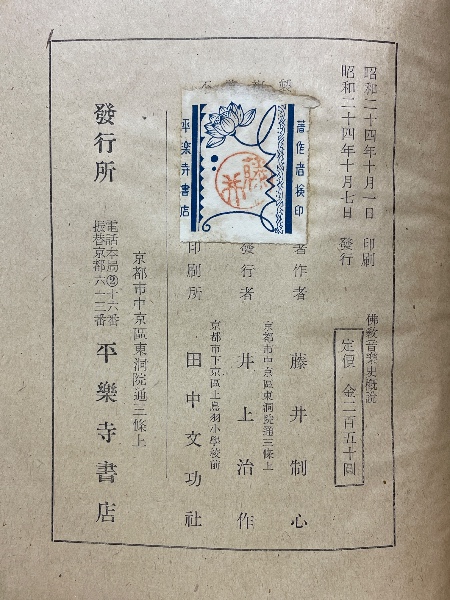 昭和二十四年十月一日　印刷
昭和二十四年十月七日　發行
佛教音樂史概説
定價　金二百五十圓
著作者検印
藤井
平樂寺書店
著作者　藤井制心
京都市中京區東洞院通三條上
發行者　井上治作
京都市下京區上鳥羽小學校前
印刷所　田中文功社
發行所
京都市中京區東洞院通三條上
平樂寺書店
電話本局②二十六番
振替京都六一三番